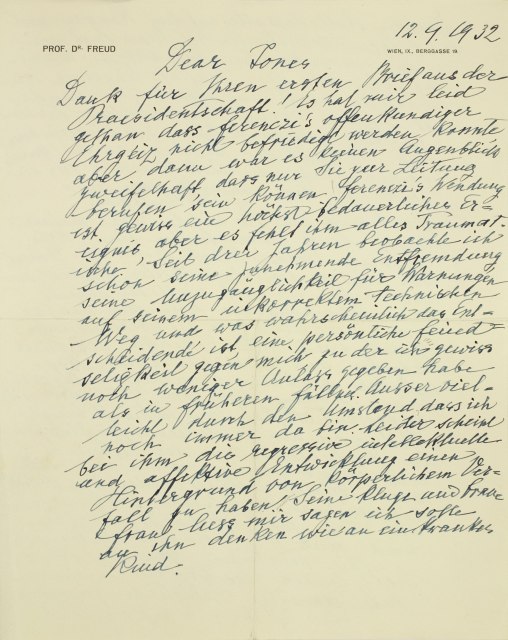 12.9.1932
PROF. DR. FREUD
WIEN, IX., BERGGASSE 19.
Dear Jones
Dank für Ihren ersten Brief aus der
Praesidentschaft! Es hat mir leid
gethan dass Ferenczi's offenkundiger
Ehrgeiz nicht befriedigt werden konnte
aber dann war es keinen Augenblick
zweifelhaft dass nur Sie zur Leitung
berufen sein können. Ferenczi's Wendung
ist gewiss ein höchst bedauerliches Er-
eignis aber es fehlt ihm alles Traumat-
ische. Seit drei Jahren beobachte ich
schon seine zunehmende Entfremdung
seine Unzugänglichkeit für Warnungen
auf seinem inkorrekten technischen
Weg und was wahrscheinlich das Ent-
scheidende ist eine persönliche Feind-
seligkeit gegen mich zu der ich gewiss
noch weniger Anlass gegeben habe
als in früheren Fällen. Ausser viel-
leicht durch den Umstand dass ich
noch immer da bin. Leider scheint
bei ihm die regressive intellektuelle
und affektive Entwicklung einen
Hintergrund von körperlichem Ver-
fall zu haben. Seine kluge und brave
Frau liess mir sagen ich solle
an ihn denken wie an ein krankes
Kind.